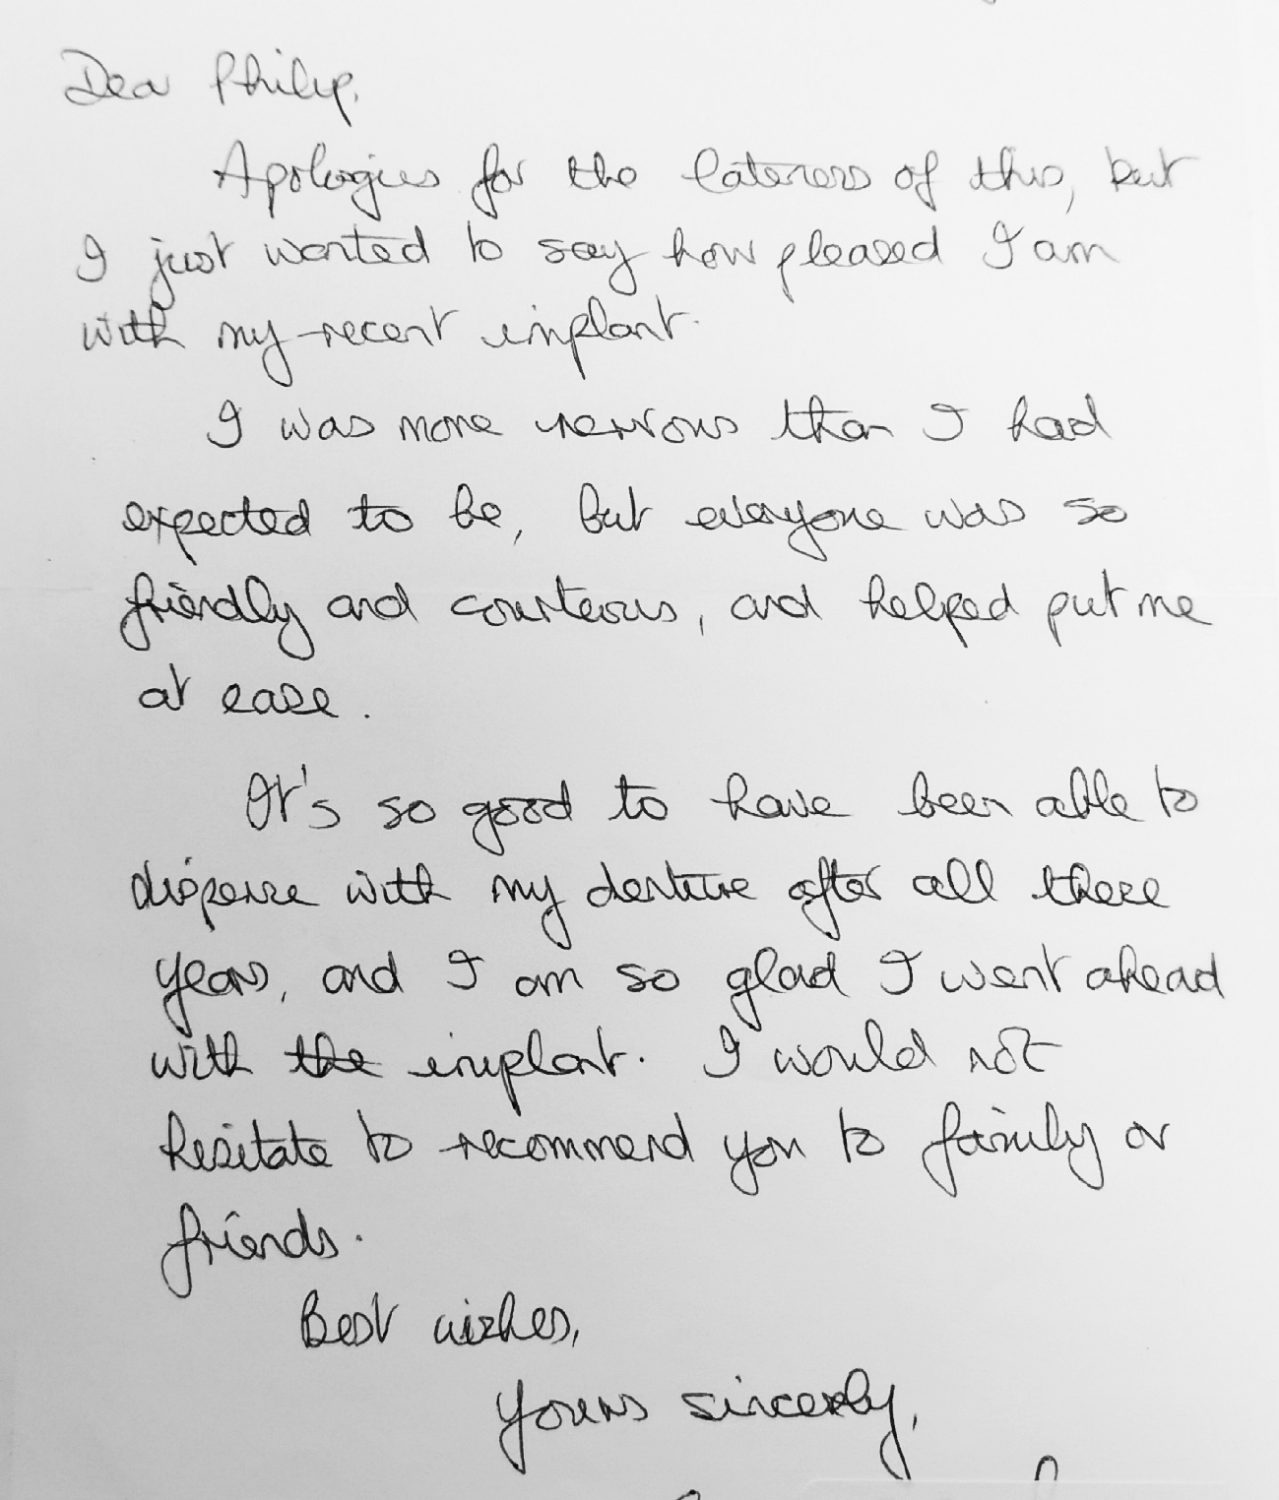 Dear Philip,
Apologies for the lateness of this, but
I just wanted to say how pleased I am
with my recent implant.
I was more nervous than I had
expected to be, but everyone was so
friendly and courteous, and helped put me
at ease.
It's so good to have been able to
dispense with my denture after all these
years, and I am so glad I went ahead
with the implant. I would not
hesitate to recommend you to family or
friends.
Best wishes,
Yours sincerely,